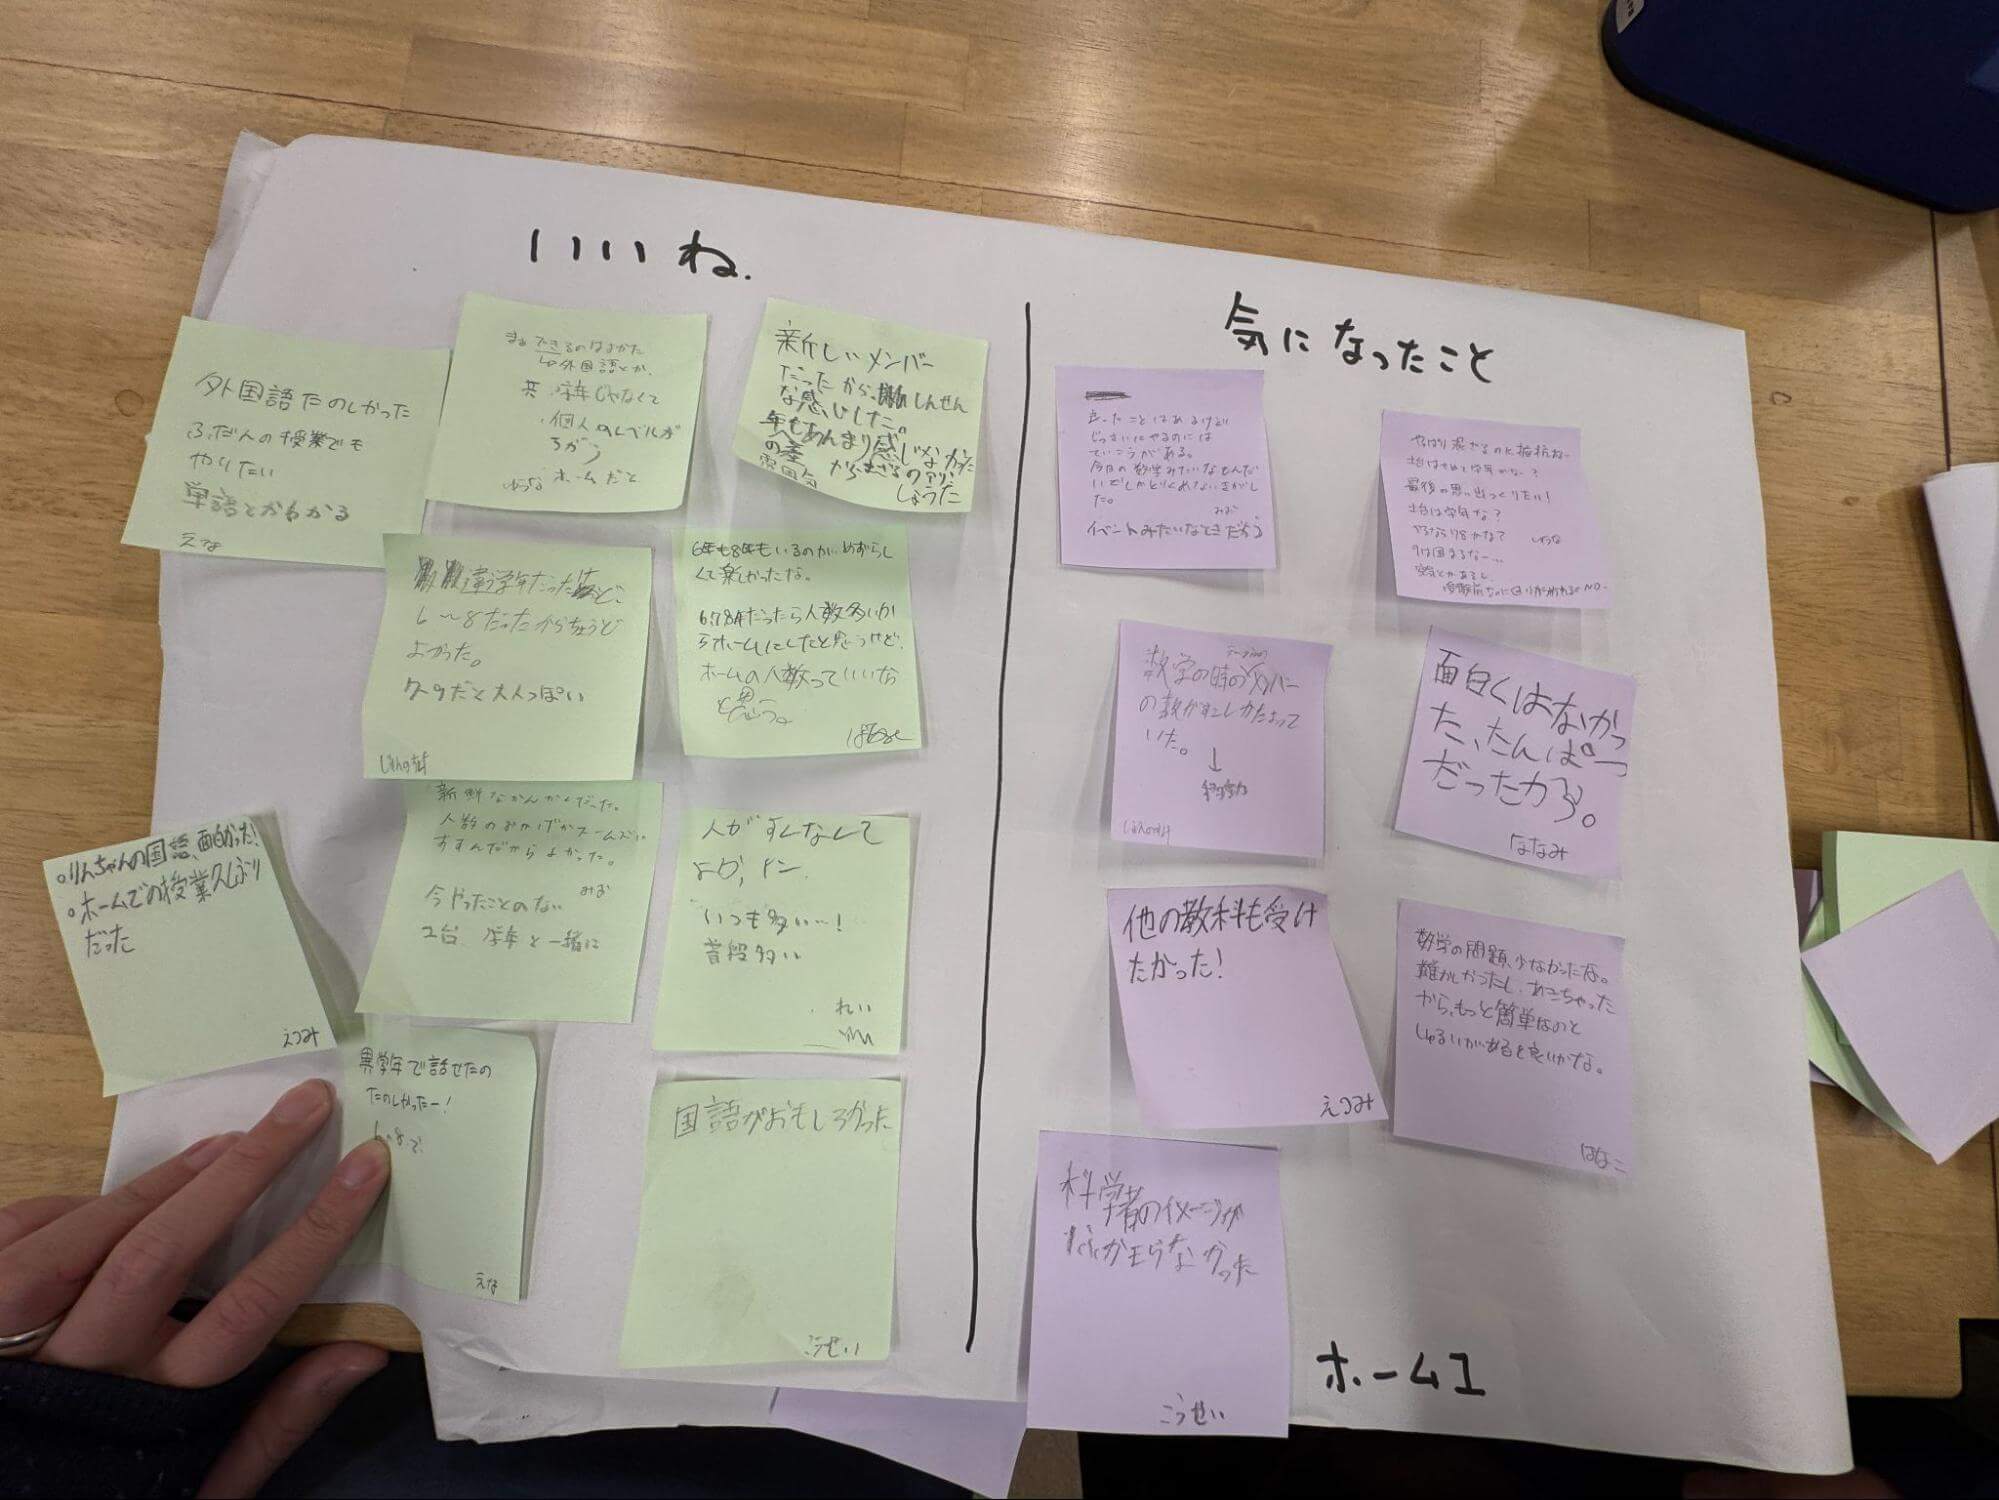 いいね.
外国語たのしかった
ふだんの授業でも
やりたい
単語とかわかる
えな
できるのはなかた
外国語とか、
学年じゃなくて
個人のレベルが
ちがう
ホームだと
新しいメンバー
だったから、しんせん
な感じした。
年もあんまり感じなかった
の差
雰囲気
しょうた
違う学年だったけど、
6〜8だったからちょうど
よかった。
9だと大人っぽい
6年も8年もいるのがめずらし
くて楽しかったな。
6.7.8年だったら人数多いか
らホームにしたと思うけど、
ホームの人数っていいな
と思う。
。りんちゃんの国語、面白かった!
。ホームでの授業久しぶり
だった
えみ
新鮮なかんかくだった。
人数のおかげかスムーズに
すすんだからよかった。
みお
今やったことのない
学年と一緒に
人が
いつも多い…!
普段多い
れい
異学年で話せたの
たのしかったー!
6〜8で
えな
国語がおもしろかった
こうせい
気になったこと
ことはあるけど
じっさいにやるのには
ていこうがある。
今日の数学みたいなもんだ
いでしかとりくめないきがし
た。
みお
イベントみたいなときだろう
やっぱり混ざるのに抵抗ね…
土台は学年かな?
最後の思い出つくりたい!
土台は学年な?
やるなら78かなて
9は固まるなー…
受験前なのに NO.
数学の時のメンバー
の数がすこしかたよって
いた。
↓
面白くはなかっ
た、たんぱつ
だったから。
ななみ
他の教科も受け
たかった!
えみ
数学の問題、少なかったな。
難かしかったし、あきちゃった
から、もっと簡単なのと
しゅるいがあると良いかな。
はなこ
科学者のイメージが
わからなかった
こうせい
ホーム1